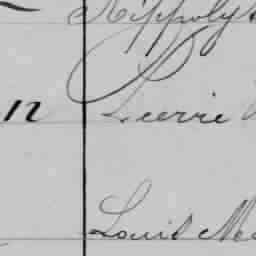 Hippolyt
12 Pierre
Louis Me